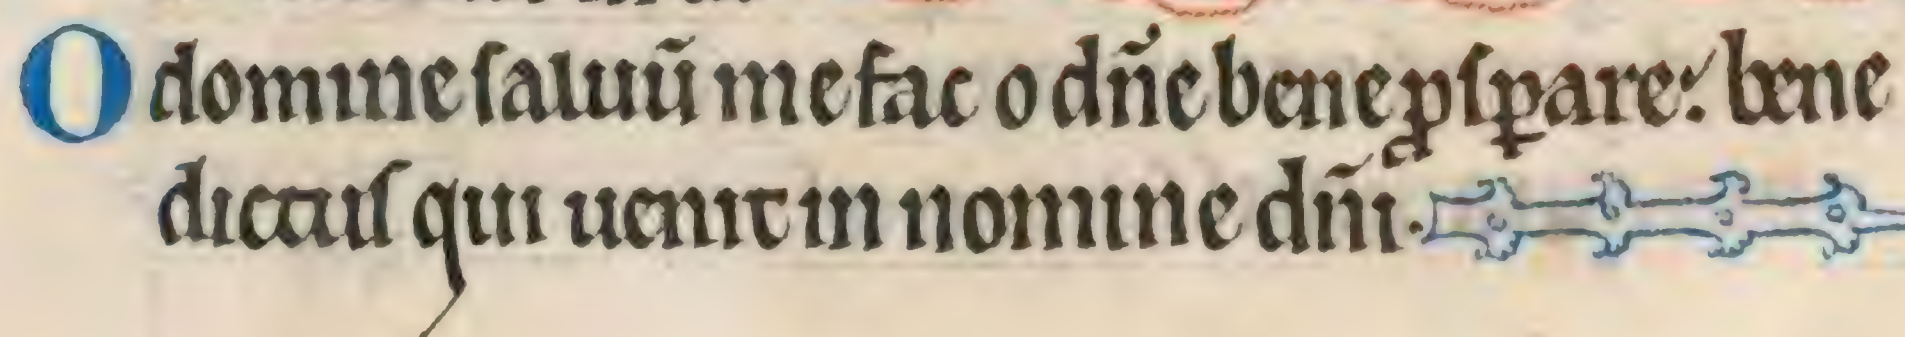 O domine saluū me fac o dn̄e bene ꝓsꝑare: bene
dictus qui uenit in nomine dn̄i.